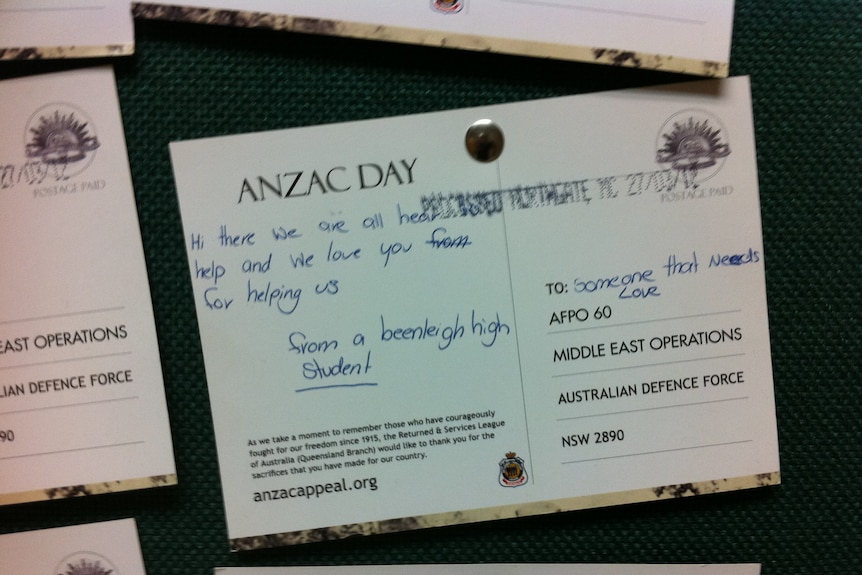 POSTAGE PAID
EAST OPERATIONS
LIAN DEFENCE FORCE
90
ANZAC DAY
PROCESSED NORTHGATE MC 27/03/12
POSTAGE PAID
Hi there we are all hear
help and we love you from
for helping us
from a beenleigh high
student
As we take a moment to remember those who have courageously
fought for our freedom since 1915, the Returned & Services League
of Australia (Queensland Branch) would like to thank you for the
sacrifices that you have made for our country.
anzacappeal.org
TO: Someone that Needs
Love
AFPO 60
MIDDLE EAST OPERATIONS
AUSTRALIAN DEFENCE FORCE
NSW 2890